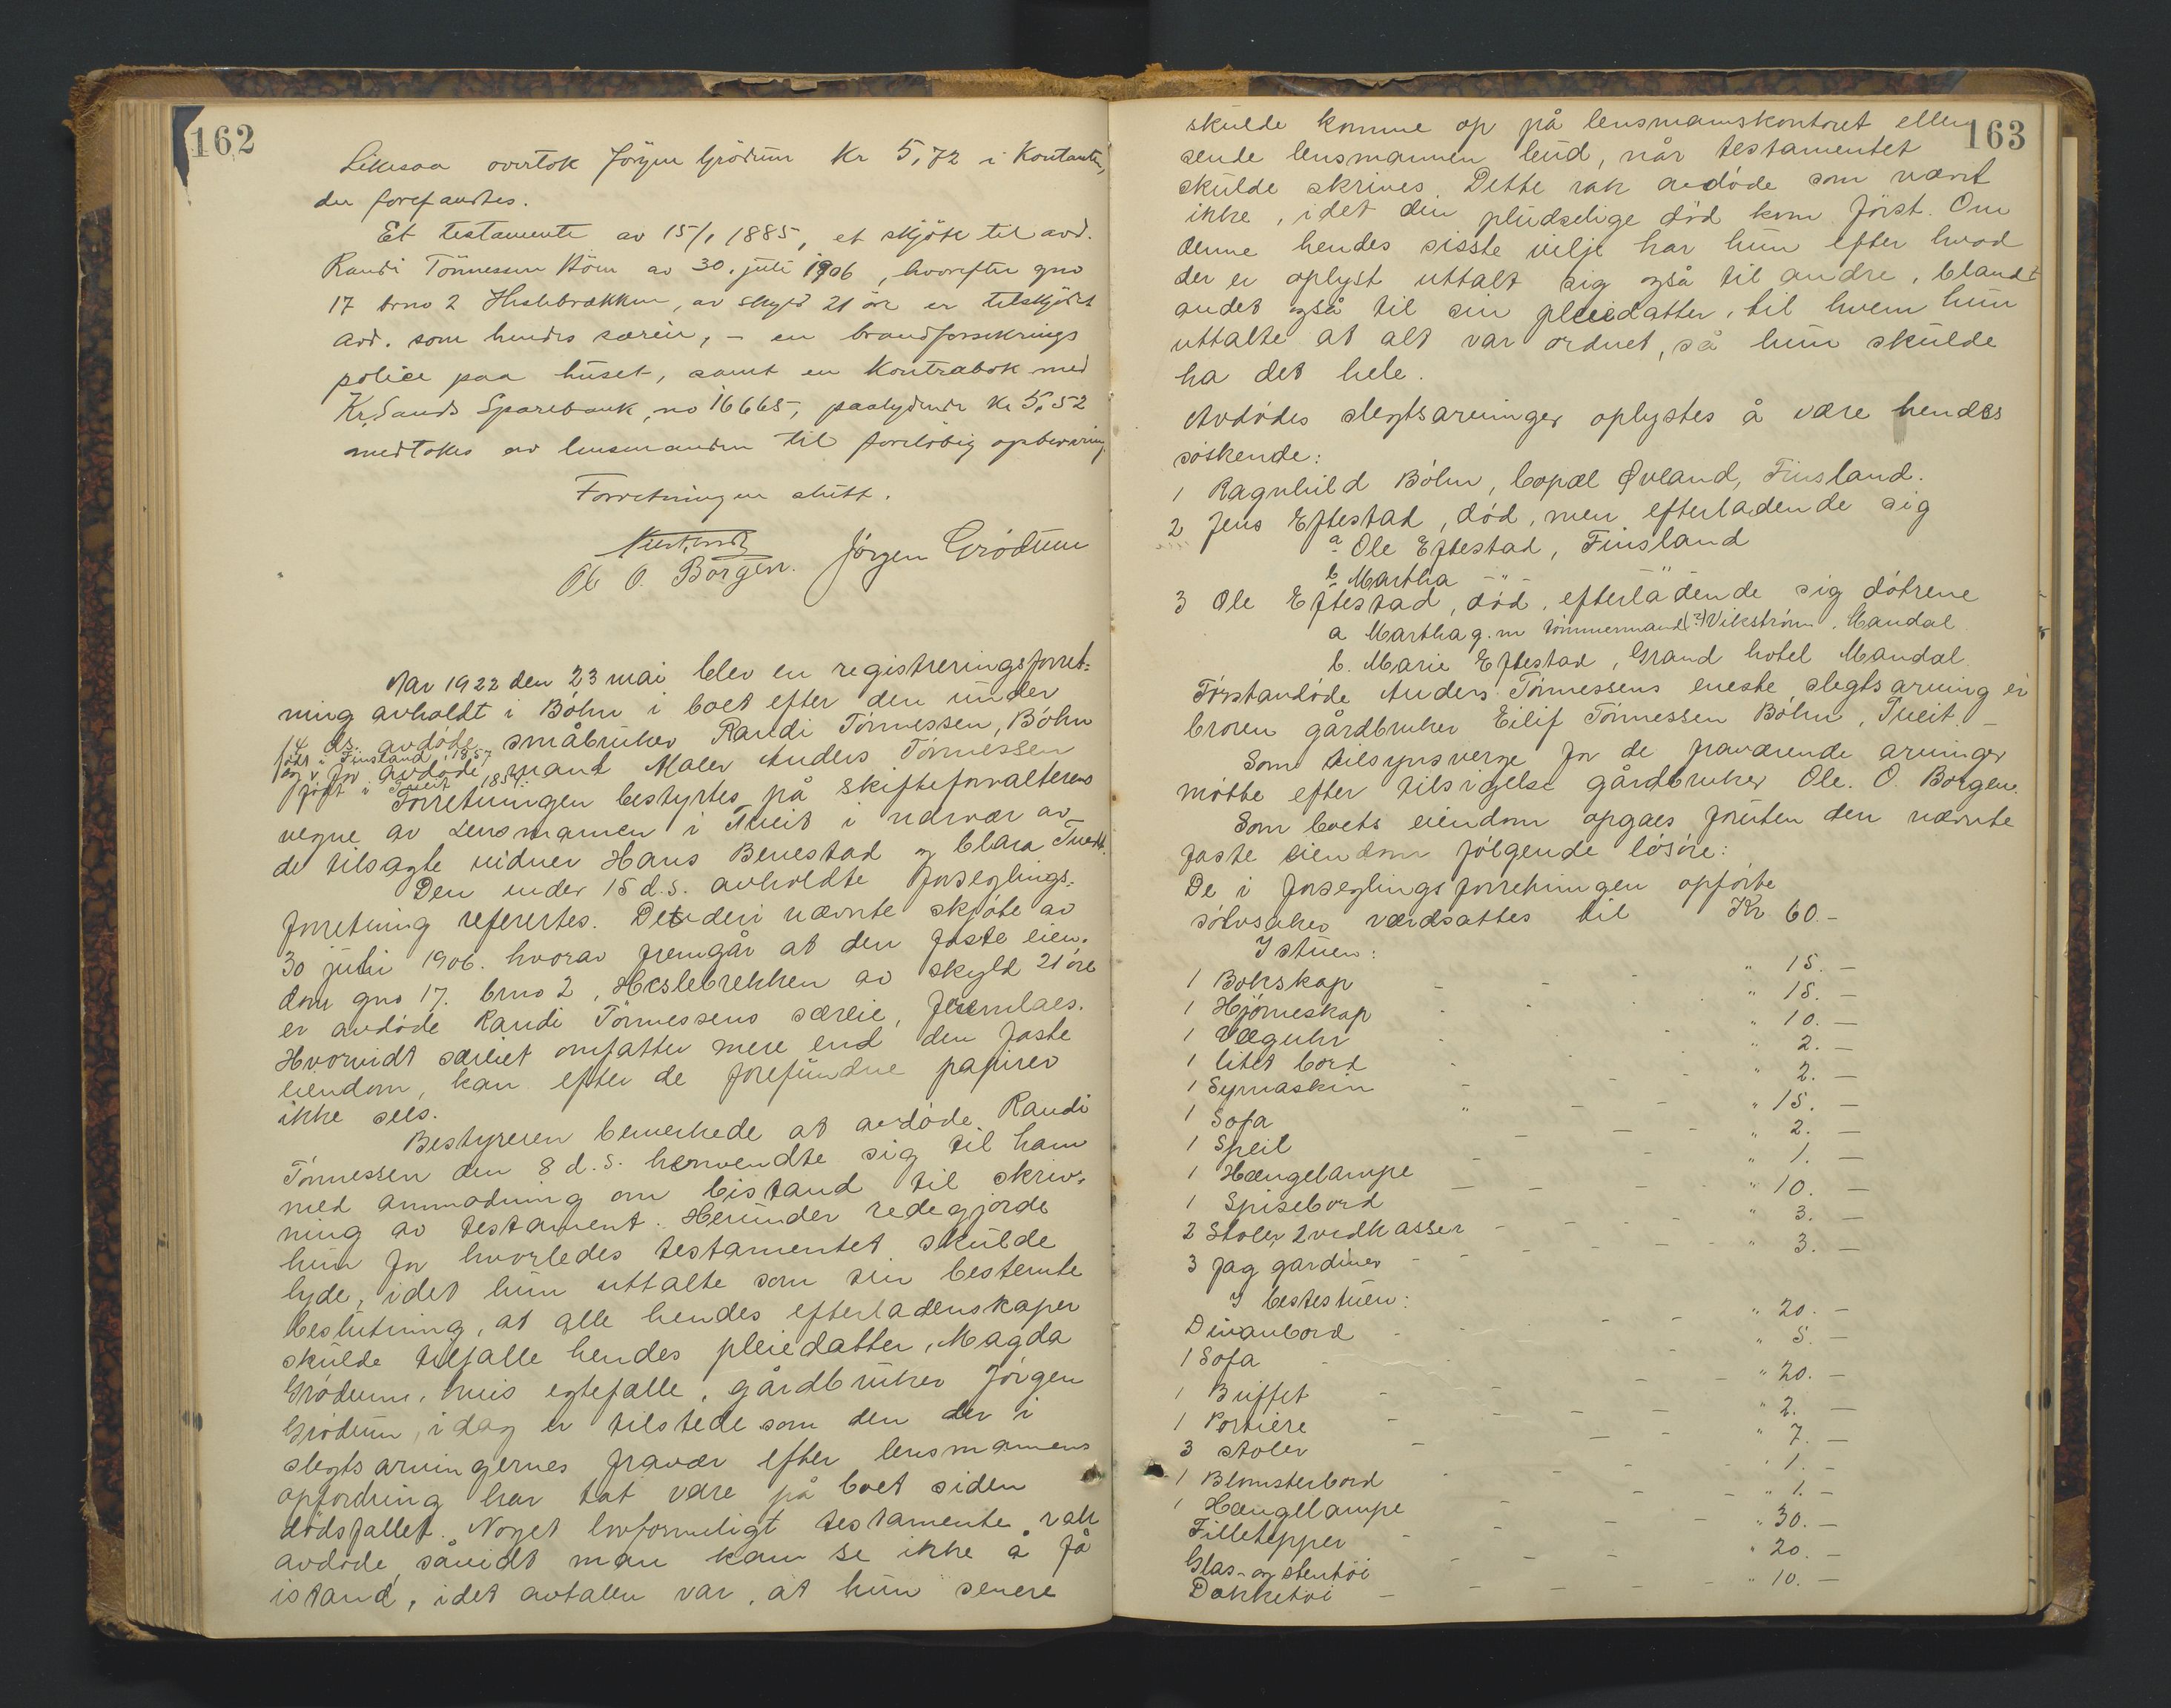 162
Likesaa overtok Jörgen Grödum Kr 5,72 i Kontanter,
der forefandtes.
Et testamente av 15/1 1885, et skjöte til avd.
Randi Tönnessen Böen av 30. juli 1906, hvorefter gno
17 brno 2 Heslebrækken, av skyld 21 öre er tilskjötet
avd. som hendes særeie, – en brandforsikrings
police paa huset, samt en Kontrabok med
Kr.Sands Sparebank no 16665, paalydende Kr 5,52
medtokes av lensmanden til foreløbig opbevaring.
Forretningen slutt.
Ole O. Borgen. Jörgen Grödum
Aar 1922 den 23 mai blev en registreringsforret-
ning avholdt i Böhn i boet efter den under
14 ds. avdöde småbruker Randi Tönnessen, Böhn
født i Finsland, 1857
og v. for avdöde mand Maler Anders Tönnessen
født i Tveit 1854.
Forretningen bestyrtes på skifteforvalterens
vegne av Lensmannen i Tveit i nærvær av
de tilsagte vidner Hans Benestad og Clara Tveit.
Den under 15 d.s. avholdte forseglings-
forretning refereres. Det deri nævnte skjöte av
30 juli 1906. hvorav fremgår at den faste eien-
dom gno 17. brno 2, Heslebrekken av skyld 21 öre
er avdöde Randi Tönnessens særeie, fremlaes.
Hvorvidt særeiet omfatter mere end den faste
eiendom, kan efter de forefundne papirer
ikke sees.
Bestyreren bemerkede at avdöde Randi
Tönnessen den 8 d.s. henvendte sig til ham
med anmodning om bistand til skriv-
ning av testament. Herunder redegjorde
hun for hvorledes testamentet skulde
lyde, idet hun uttalte som sin bestemte
beslutning, at alle hendes efterladenskaper
skulde tilfalle hendes pleiedatter, Magda
Grödum, hvis egtefælle, gårdbruker Jörgen
Grödum, idag er tilstede som den der i
slegtsarvingernes fravær efter lensmannens
opfordring har tat vare på boet siden
dödsfallet. Noget lovformeligt testamente rak
avdöde, såvidt man kan se ikke å få
istand, idet avtalen var, at hun senere
163
skulde komme op på lensmannskontoret eller
sende lensmannen bud, når testamentet
skulde skrives. Dette rak avdöde som nævnt
ikke, idet den pludselige död kom först. Om
denne hendes sisste vilje har hun efter hvad
der er oplyst uttalt sig også til andre, blandt
andet også til sin pleiedatter, til hvem hun
uttalte at alt var ordnet, så hun skulde
ha det hele.
Avdödes slegtsarvinger oplystes å være hendes
söskende:
1 Ragnhild Böhn, bopæl Øvland, Finsland.
2 Jens Eftestad, död, men efterladende sig
a Ole Eftestad, Finsland
b Martha –"– "
3 Ole Eftestad, död, efterladende sig dötrene
a Martha g.m tömmermand (?) Vikström, Mandal
b. Marie Eftestad, Grand hotel Mandal.
Förstavdöde Anders Tönnessens eneste slegtsarving er
broren gårdbruker Eilif Tönnessen Böhn, Tveit. –
Som tilsynsverge for de fraværende arvinger
mötte efter tilsigelse gårdbruker Ole. O. Borgen.
Som boets eiendom opgaes foruten den nævnte
faste eiendom fölgende lösöre:
De i forseglingsforretningen opförte
sölvsaker værdsattes til Kr 60.–
I stuen:
1 Bokskap – – – " 15. –
1 Hjörneskap – – – " 15. –
1 Væguhr – – " 10. –
1 litet bord – – " 2. –
1 Symaskin – – – " 2. –
1 Sofa " – – " 15. –
1 Speil – – – " 2. –
1 Hængelampe – – – " 1. –
1 Spisebord – – – – " 10. –
2 Stoler, 2 vedkasser – – – – " 3. –
3 fag gardiner – – – – " 3. –
I bestestuen:
Divanbord – – – – " 20. –
1 Sofa – – – – " 5. –
1 Buffet – – – – " 20. –
1 Portiere – – – – " 2. –
3 stoler – – – " 7. –
1 Blomsterbord – – – " 1. –
1 Hængelampe – – – " 1. –
Filletepper – – – – " 30. –
Glas- og stentöi – – – " 20. –
Dækketöi – – – – " 10. –